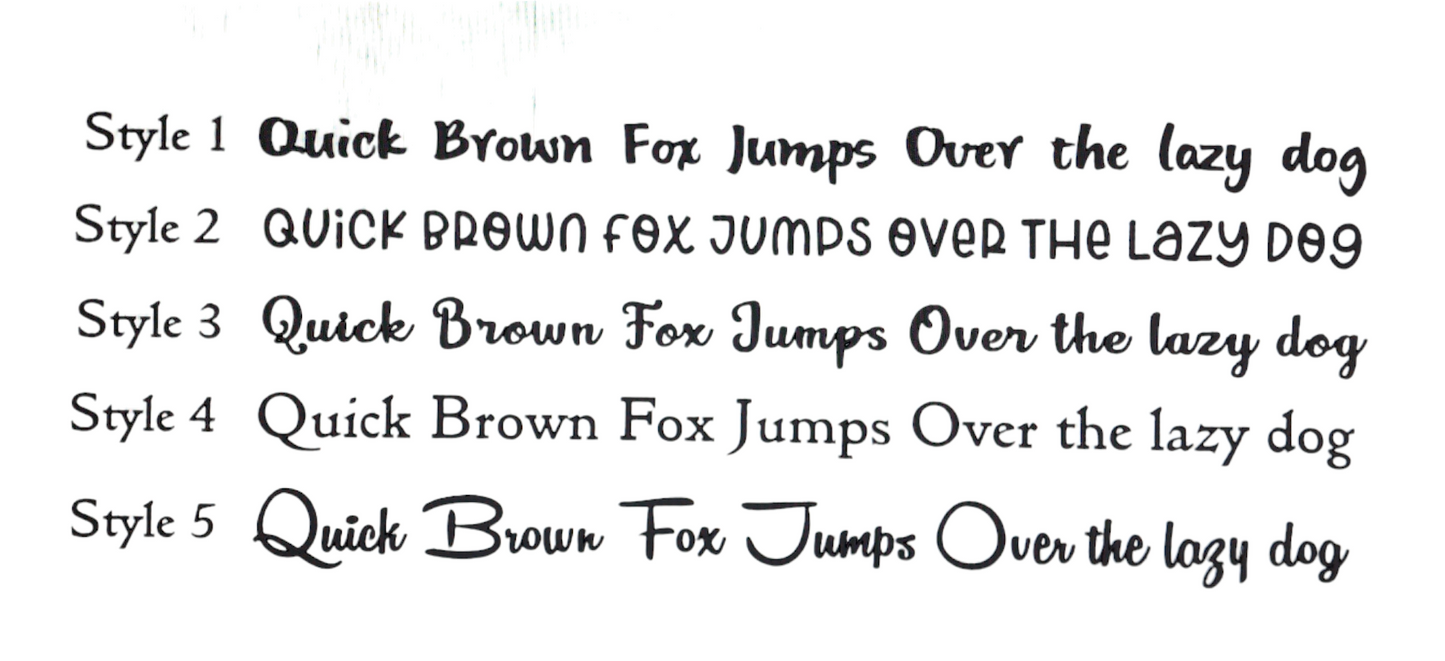 Style 1 Quick Brown Fox Jumps Over the lazy dog
Style 2 QUiCK BROWN FOX JUMPS OVeR THe LaZY DOg
Style 3 Quick Brown Fox Jumps Over the lazy dog
Style 4 Quick Brown Fox Jumps Over the lazy dog
Style 5 Quick Brown Fox Jumps Over the lazy dog